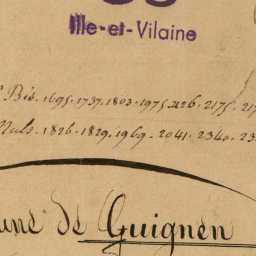 Ille-et-Vilaine
Bis. 1695. 1737. 1803. 1975. 2126. 2175.
Nuls. 1826. 1829. 1969. 2041. 2340.
de Guignen